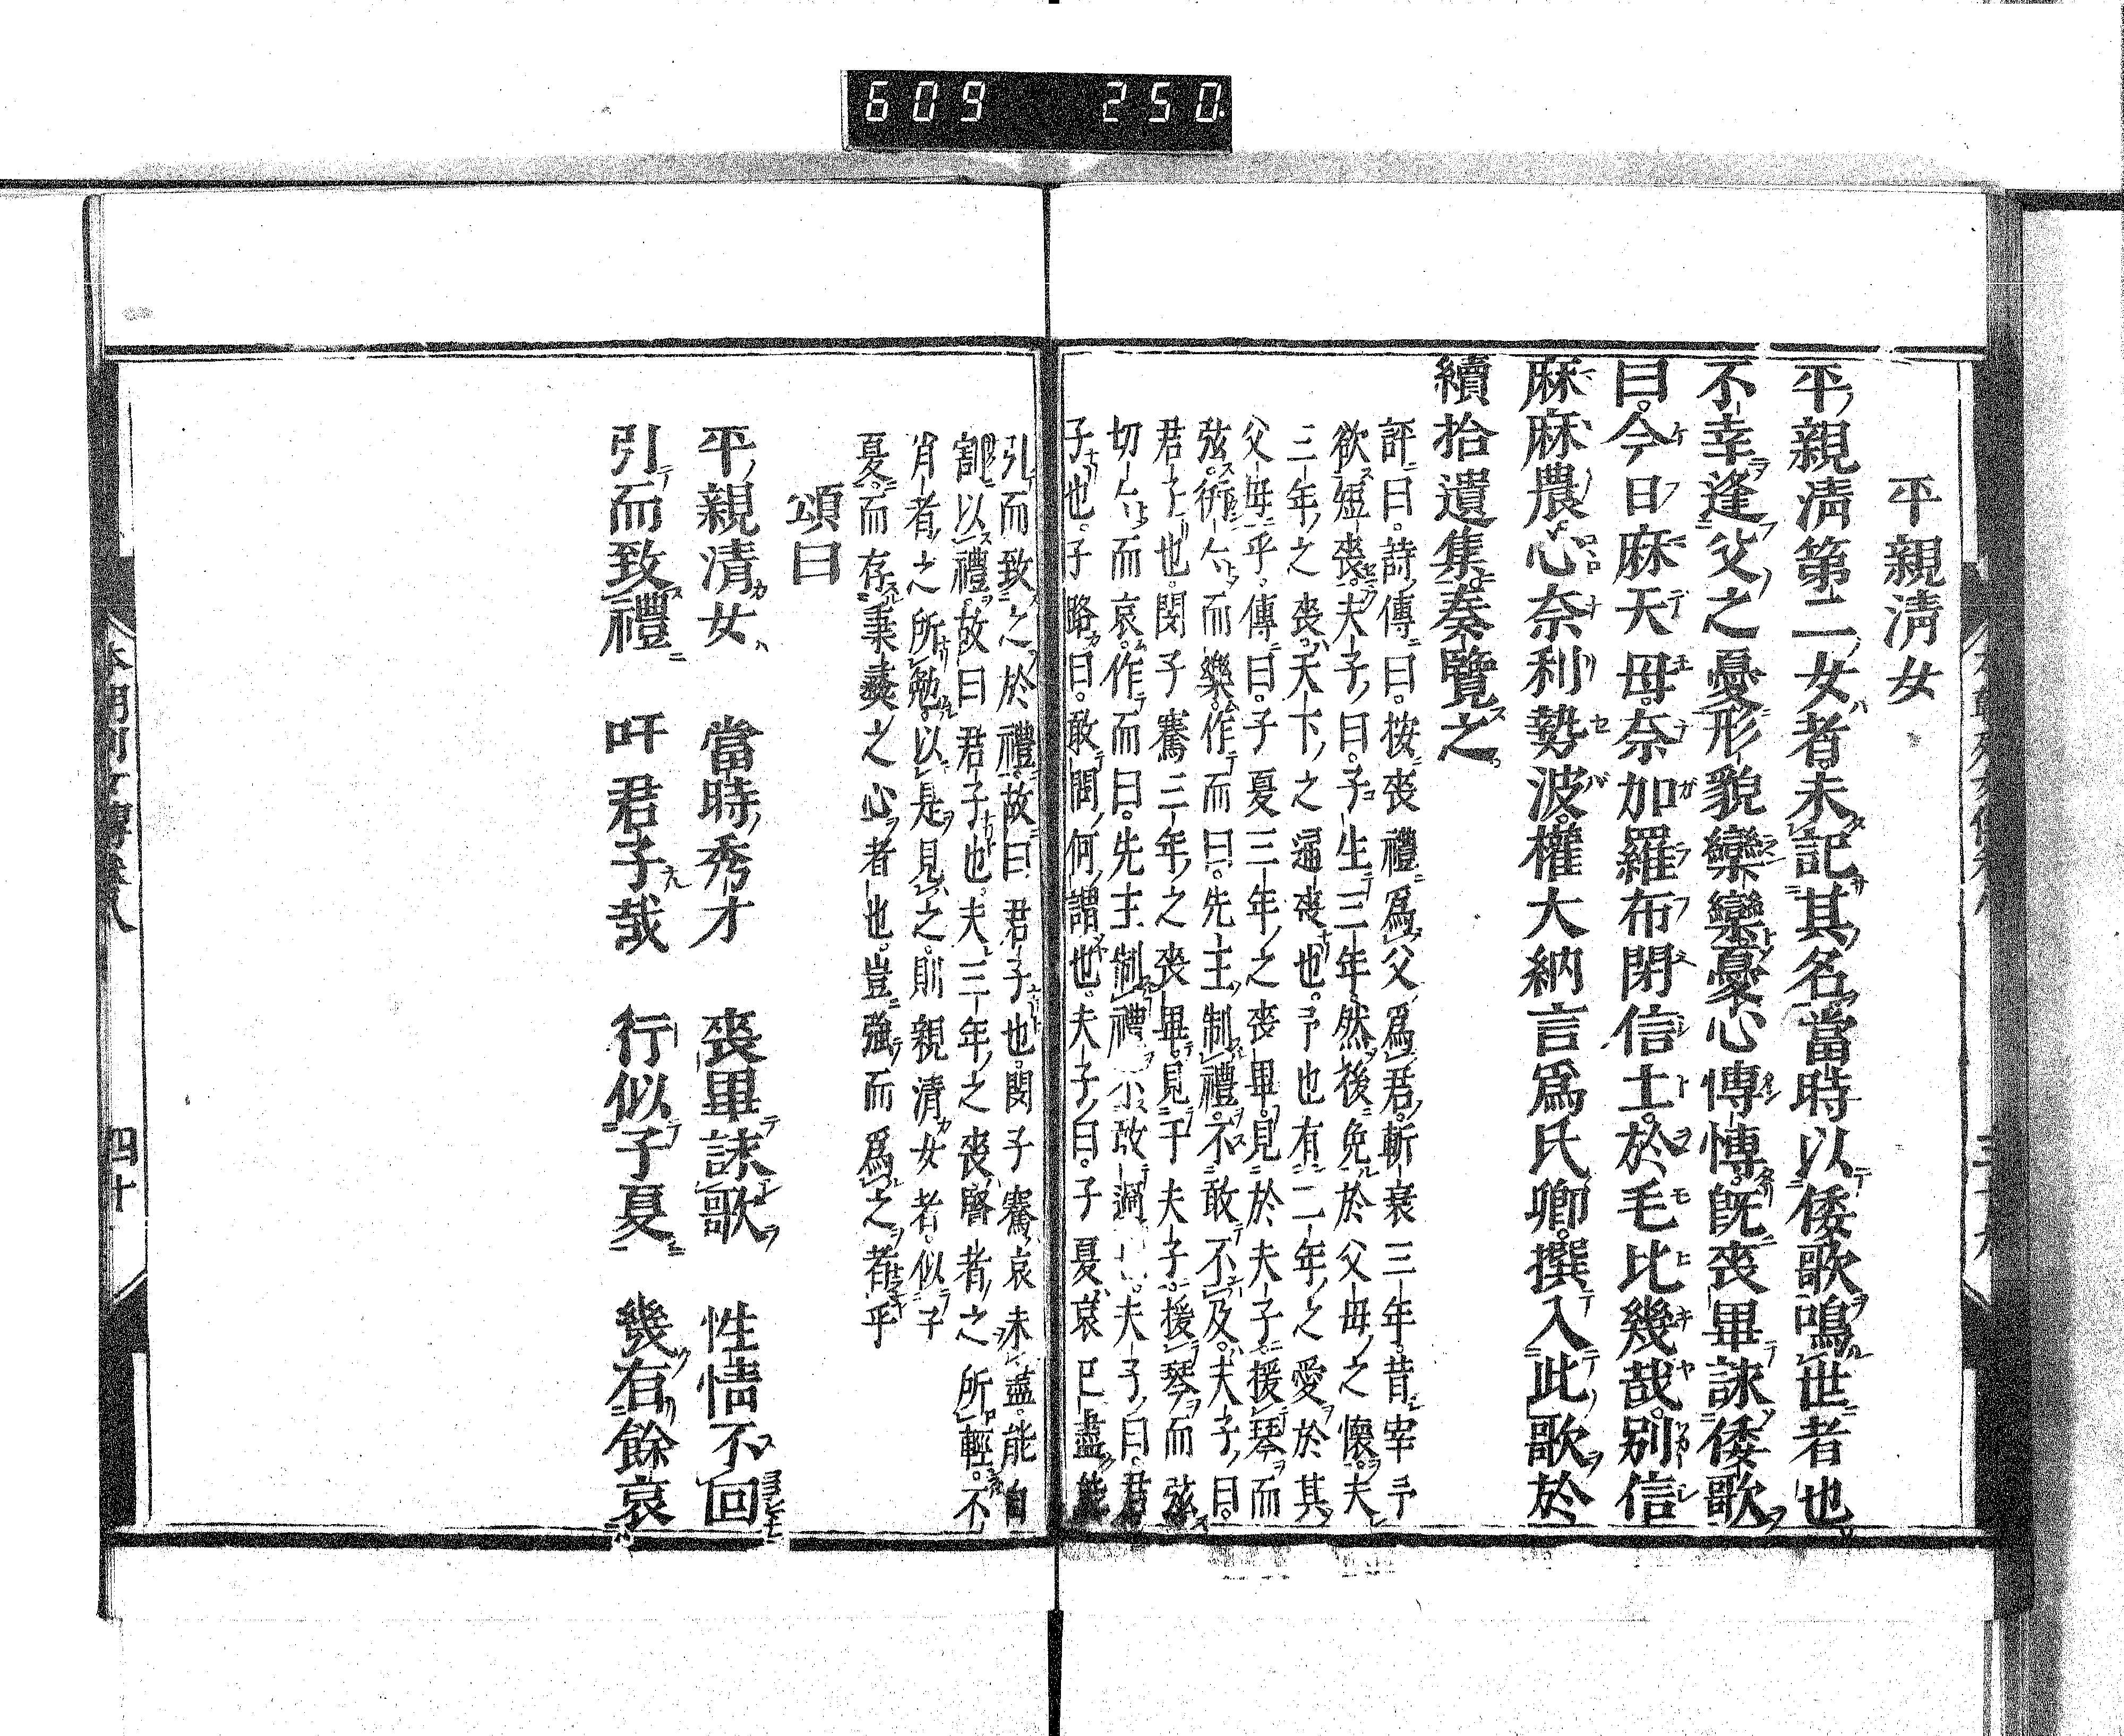 609 250
平親淸女
平親淸第二女者未記其名當時以倭歌鳴世者也
不幸逢父之憂形貌欒欒憂心慱慱既喪畢詠倭歌
曰今日麻天母奈加羅布閉信土於毛比幾哉別信
麻麻農心奈利勢波權大納言爲氏卿撰入此歌於
續拾遺集奏覽之
評曰詩傳曰按喪禮爲父爲君斬衰三年昔宰予
欲短喪夫子曰子生三年然後免於父母之懷夫
三年之喪天下之通喪也予也有三年之愛於其
父母乎傳曰子夏三年之喪畢見於夫子援琴而
弦衎衎而樂作而曰先王制禮不敢不及夫子曰
君子也閔子騫三年之喪畢見于夫子援琴而弦
切切而哀作而曰先王制禮不敢過 夫子曰君
子也子路曰敢問何謂也夫子曰子夏哀已盡能
引而致之於禮故曰君子也閔子騫哀未盡能自
割以禮故曰君子也夫三年之喪賢者之所輕不
肖者之所勉以是見之則親淸女者似子
夏而存秉彝之心者也豈強而爲之者乎
頌曰
平親淸女 當時秀才 喪畢詠歌 性情不回
引而致禮 吁君子哉 行似子夏 幾有餘哀
本朝列女傳卷八 四十